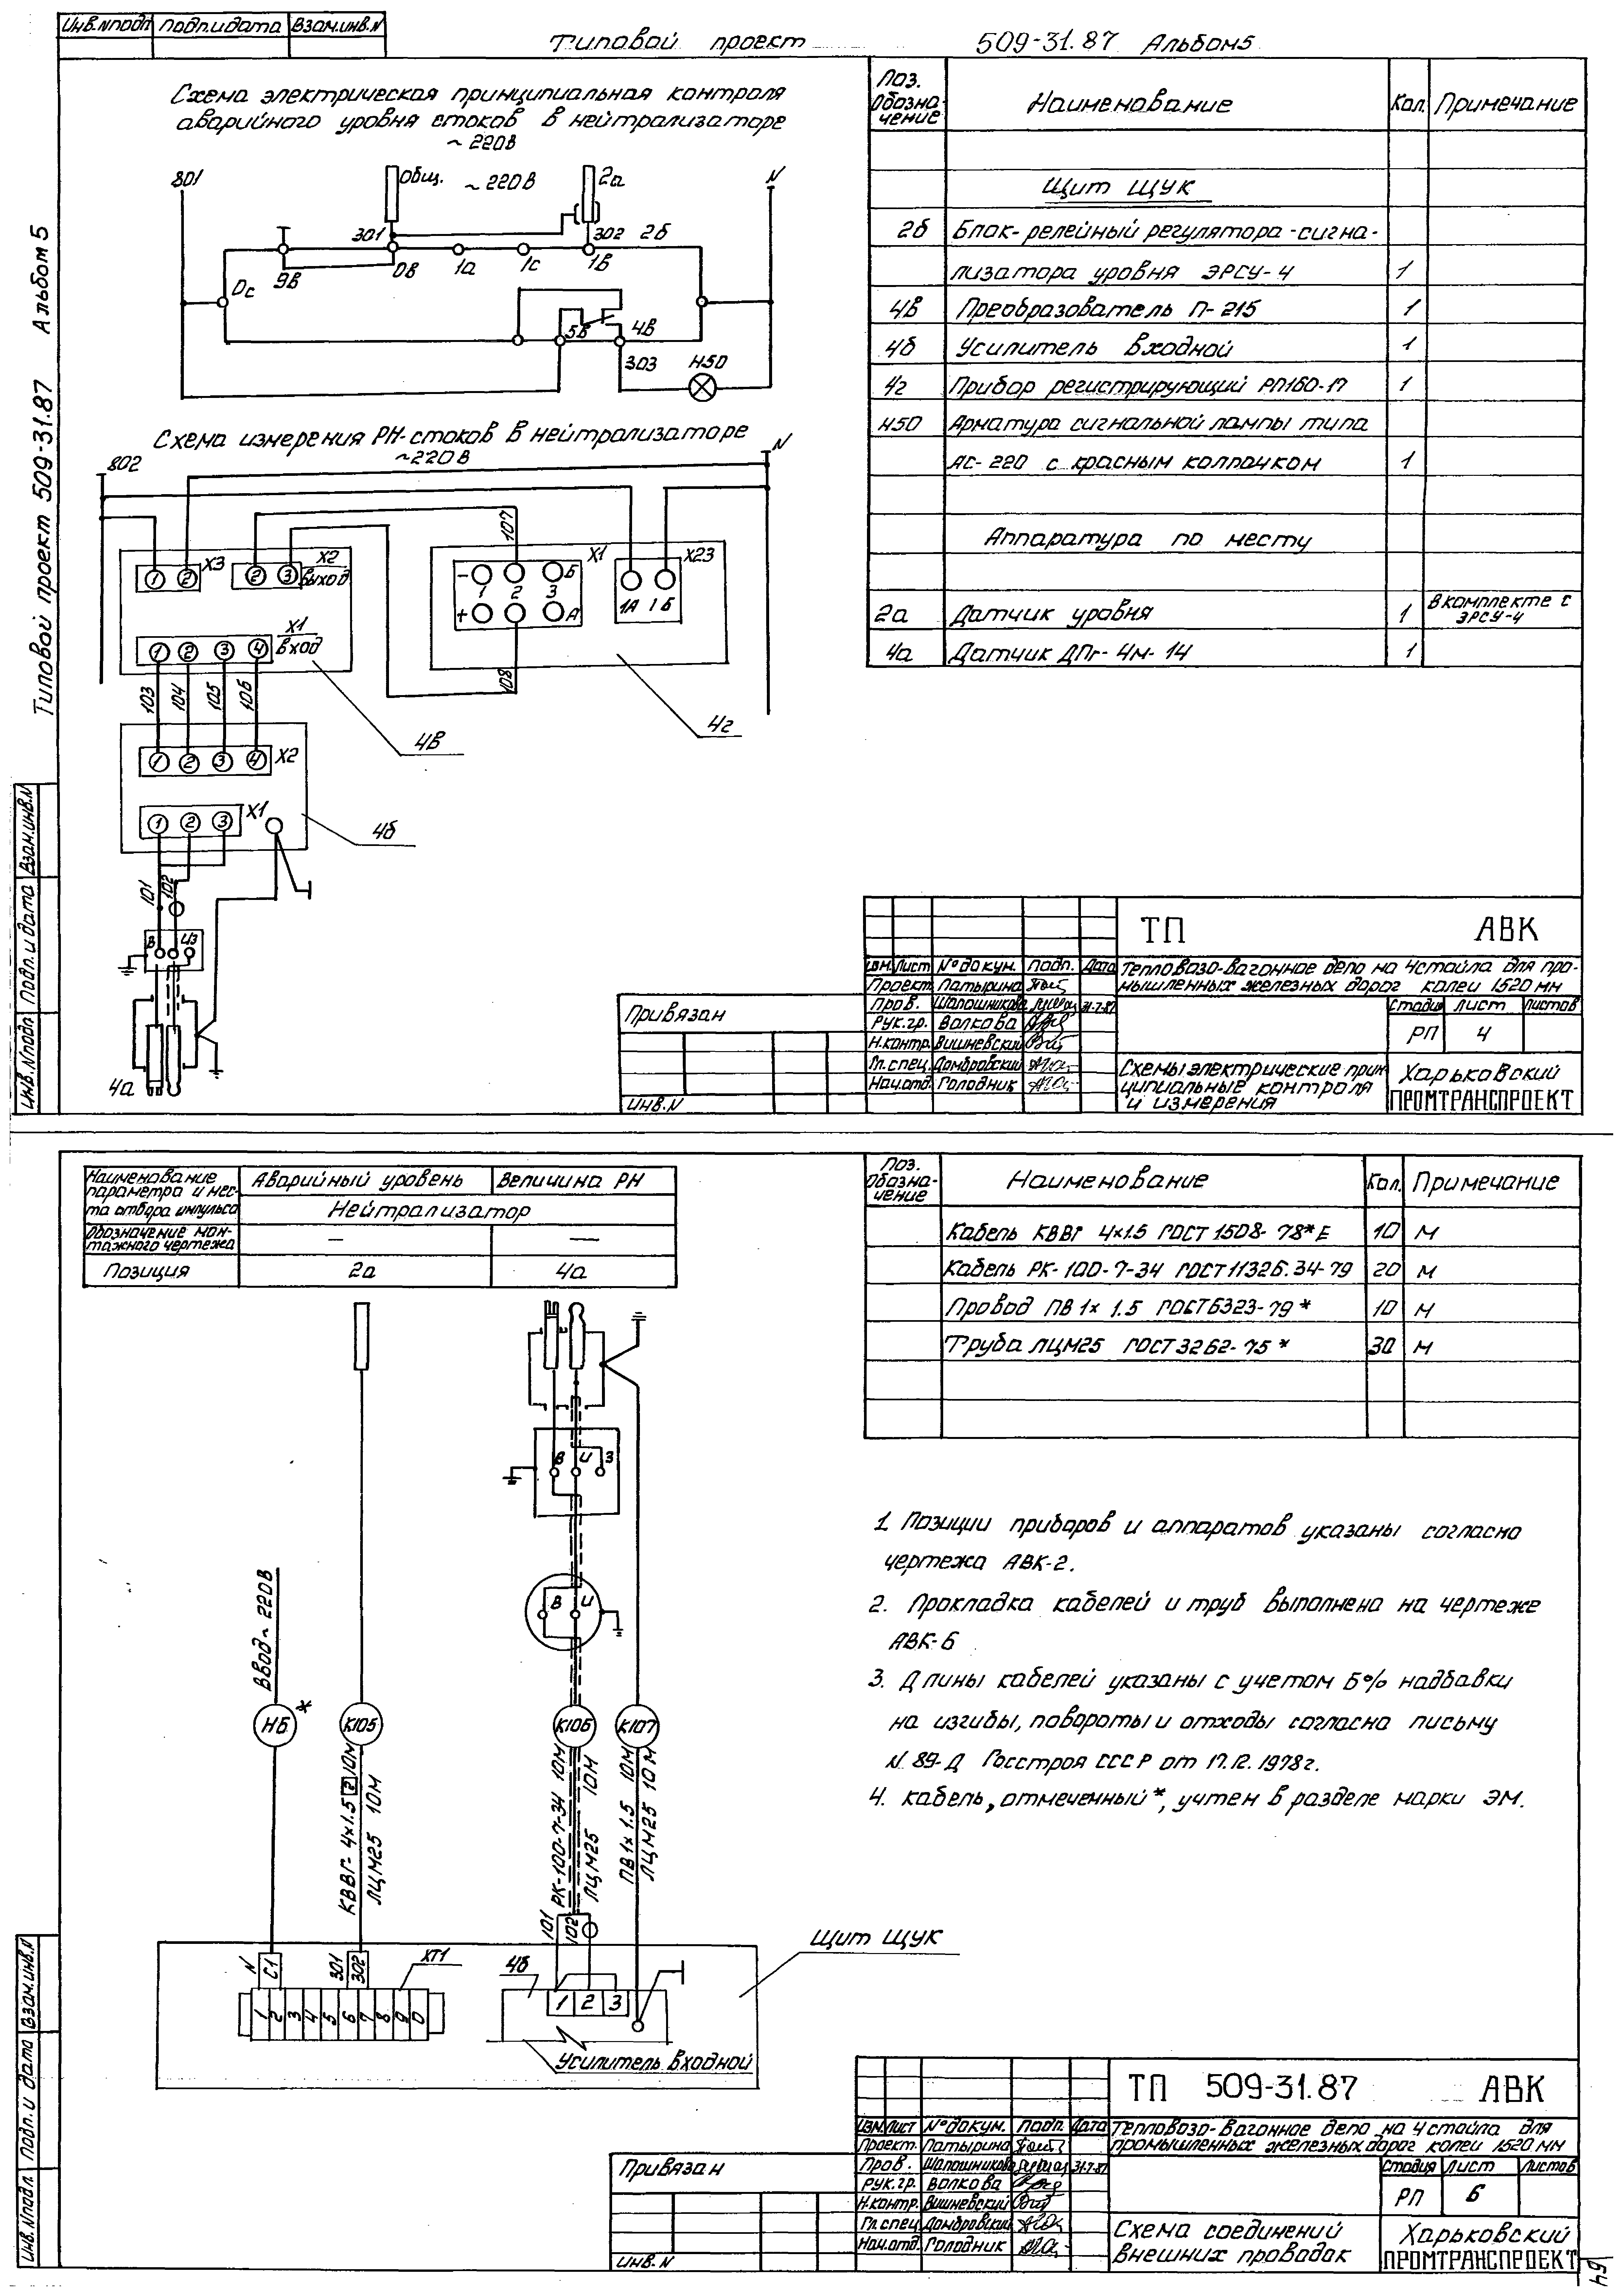 Инв.Nподл Подп.и дата Взам.инв.N
Типовой проект 509-31.87 Альбом5
Типовой проект 509-31.87 Альбом 5
Схема электрическая принципиальная контроля
аварийного уровня стоков в нейтрализаторе
~ 220В
801
Общ. ~ 220В
2а
N
301
302
2б
Ос
9в
0в
1а
1с
1в
5в
4в
303
Н50
Схема измерения РН-стоков в нейтрализаторе
~220В
802
N
107
1 2 Х3
2 3 Х2
выход
- 1 2 3 Б Х1
+ А
1А 1Б Х23
1 2 3 4 Х1
вход
103 104 105 106
108
4в
4г
1 2 3 4 Х2
1 2 3 Х1
4б
101 102
В И З
4а
Поз. обозначение
Наименование
Кол.
Примечание
Щит ЩУК
2б Блок-релейный регулятора-сигна-
лизатора уровня ЭРСУ-4 1
4в Преобразователь П-215 1
4б Усилитель входной 1
4г Прибор регистрирующий РП160-17 1
Н50 Арматура сигнальной лампы типа
АС-220 с красным колпачком 1
Аппаратура по месту
2а Датчик уровня 1 В комплекте с
ЭРСУ-4
4а Датчик ДПг-4м-14 1
Инв.Nподл Подп.и дата Взам.инв.N
Привязан
Инв.N
ТП АВК
Изм. Лист N°докум. Подп. Дата
Проект. Патырина
Пров. Шапошникова 31.7.87
Рук.гр. Волкова
Н.контр. Вишневский
Гл.спец. Домбровский
Нач.отд. Голодник
Тепловозо-вагонное депо на 4 стойла для про-
мышленных железных дорог колеи 1520 мм
Стадия Лист Листов
РП 4
Схемы электрические прин
ципиальные контроля
и измерения
Харьковский
ПРОМТРАНСПРОЕКТ
Наименование
параметра и мес-
та отбора импульса
Аварийный уровень
Величина РН
Нейтрализатор
Обозначение мон-
тажного чертежа
— —
Позиция 2а 4а
Поз.
обозна-
чение
Наименование
Кол.
Примечание
Кабель КВВГ 4х1.5 ГОСТ 1508-78*Е 10 м
Кабель РК-100-7-34 ГОСТ 11326.34-79 20 м
Провод ПВ 1х1.5 ГОСТ6323-79* 10 м
Труба ЛЦМ25 ГОСТ 3262-75* 30 м
В И З
В И
Ввод~220В
Н6 *
К105
К106
К107
КВВГ-4х1.5 2 10м
ЛЦМ25 10м
РК-100-7-34 10м
ЛЦМ25 10м
ПВ 1х1.5 10м
ЛЦМ25 10м
101
102
N С1
301 302
ХТ1
1 2 3 4 5 6 7 8 9 0
4б
1 2 3
Усилитель входной
Щит ЩУК
1. Позиции приборов и аппаратов указаны согласно
чертежа АВК-2.
2. Прокладка кабелей и труб выполнена на чертеже
АВК-6
3. Длины кабелей указаны с учетом 6% надбавки
на изгибы, повороты и отходы согласно письму
N 89-Д Госстроя СССР от 17.12.1978г.
4. Кабель, отмеченный *, учтен в разделе марки ЭМ.
Инв.Nподл. Подп. и дата Взам.инв.N
Привязан
Инв.N
ТП 509-31.87 АВК
Изм. Лист N°докум. Подп. Дата
Проект. Патырина
Пров. Шапошникова 31.7.87
Рук.гр. Волкова
Н.контр. Вишневский
Гл.спец. Домбровский
Нач.отд. Голодник
Тепловозо-вагонное депо на 4 стойла для
промышленных железных дорог колеи 1520 мм
Стадия Лист Листов
РП 6
Схема соединений
внешних проводок
Харьковский
ПРОМТРАНСПРОЕКТ
64